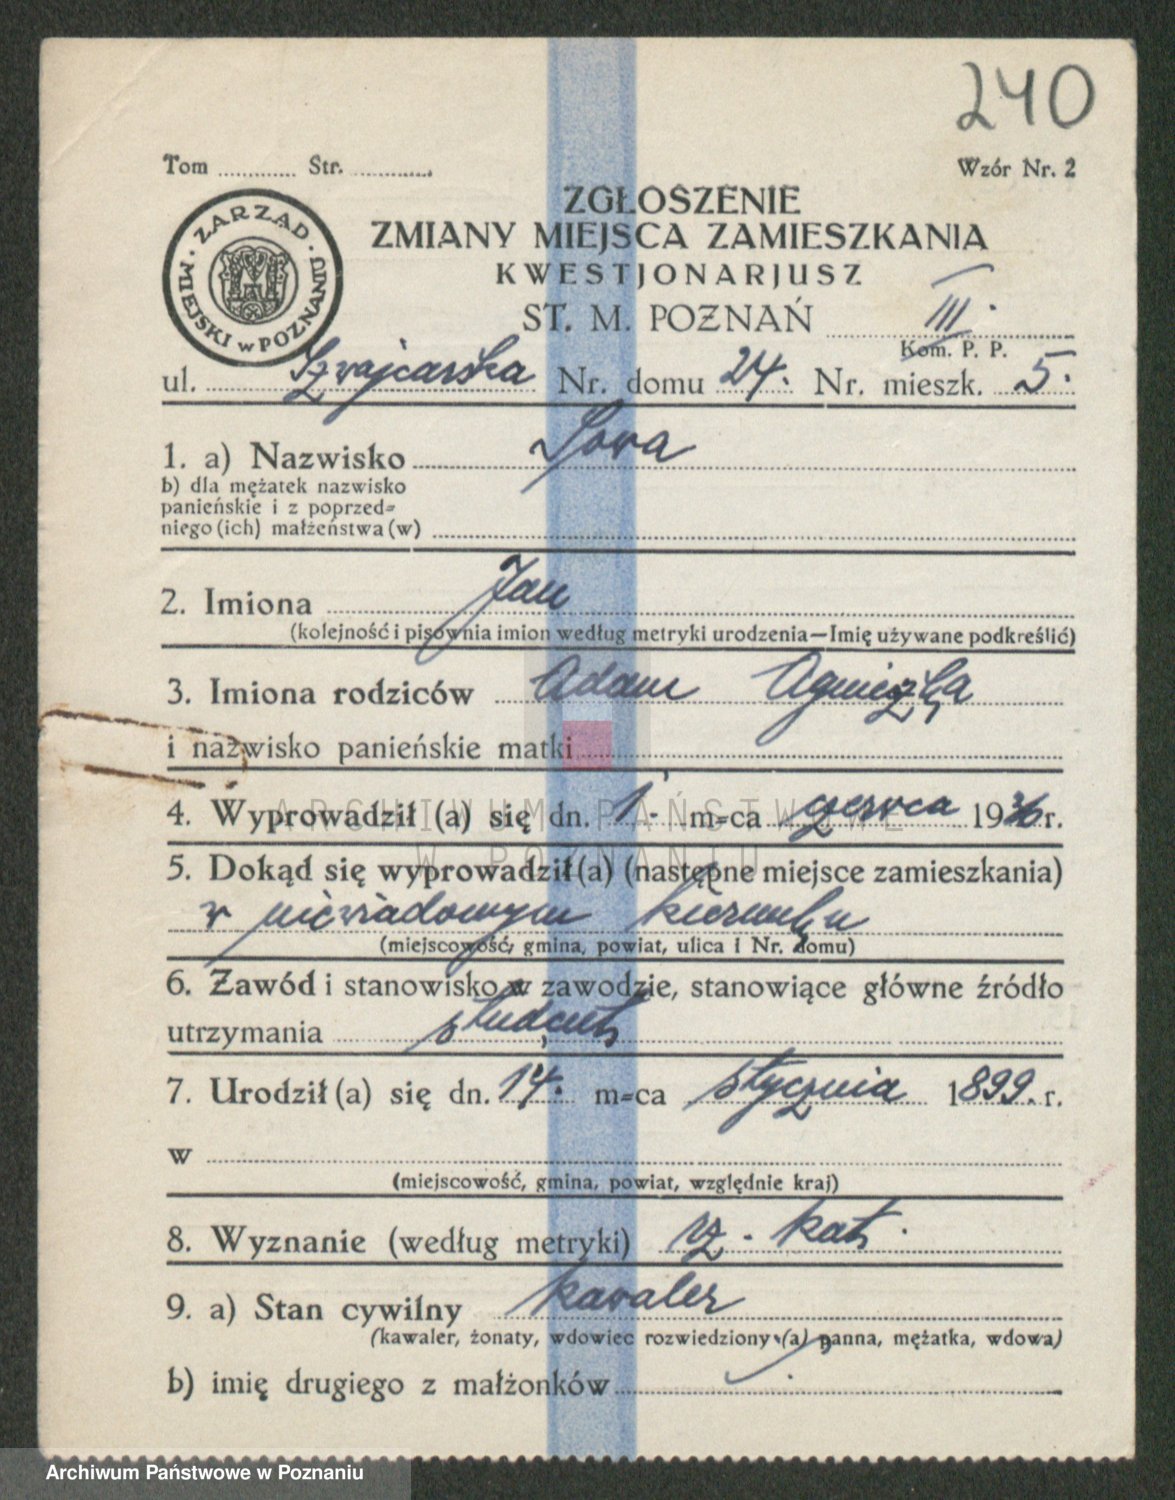 240
Tom ............ Str. ............
Wzór Nr. 2
ZARZĄD · MIEJSKI w POZNANIU ·
ZGŁOSZENIE
ZMIANY MIEJSCA ZAMIESZKANIA
KWESTJONARJUSZ
ST. M. POZNAŃ III.
Kom. P. P.
ul. Szwajcarska Nr. domu 24. Nr. mieszk. 5.
1. a) Nazwisko Sowa
b) dla mężatek nazwisko
panieńskie i z poprzed=
niego (ich) małżeństwa (w)
2. Imiona Jan
(kolejność i pisownia imion według metryki urodzenia—Imię używane podkreślić)
3. Imiona rodziców Adam Agnieszka
i nazwisko panieńskie matki
ARCHIWUM PAŃSTWOWE
W POZNANIU
4. Wyprowadził (a) się dn. 1. m=ca czerwca 1936 r.
5. Dokąd się wyprowadził (a) (następne miejsce zamieszkania)
w niewiadomym kierunku
(miejscowość, gmina, powiat, ulica i Nr. domu)
6. Zawód i stanowisko w zawodzie, stanowiące główne źródło
utrzymania student
7. Urodził (a) się dn. 14. m=ca stycznia 1899. r.
w
(miejscowość, gmina, powiat, względnie kraj)
8. Wyznanie (według metryki) rz. kat.
9. a) Stan cywilny kawaler
(kawaler, żonaty, wdowiec rozwiedziony (a) panna, mężatka, wdowa)
b) imię drugiego z małżonków
Archiwum Państwowe w Poznaniu